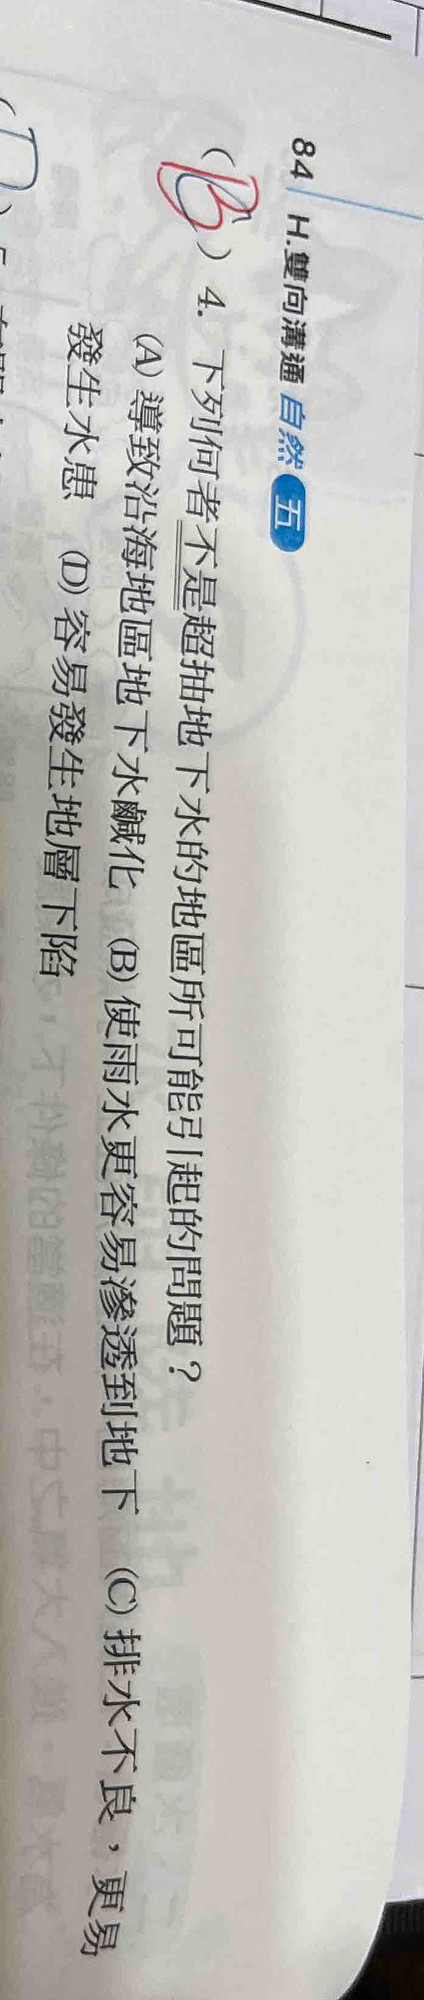 84 H.雙向溝通 自然 五
(B) 4. 下列何者不是超抽地下水的地區所可能引起的問題？
(A) 導致沿海地區地下水鹹化 (B) 使雨水更容易滲透到地下 (C) 排水不良，更易
發生水患 (D) 容易發生地層下陷